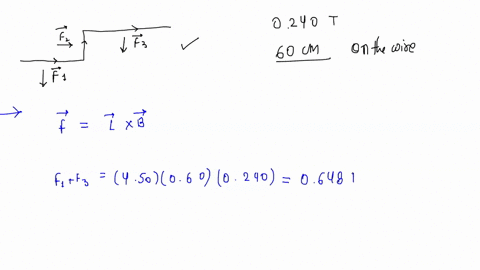 F₂ F₃ ✓
F₁
0.240 T
60 cm on the wire
→ f⃗ = L⃗ × B⃗
F₁+F₃ = (4.50)(0.60)(0.240) = 0.648